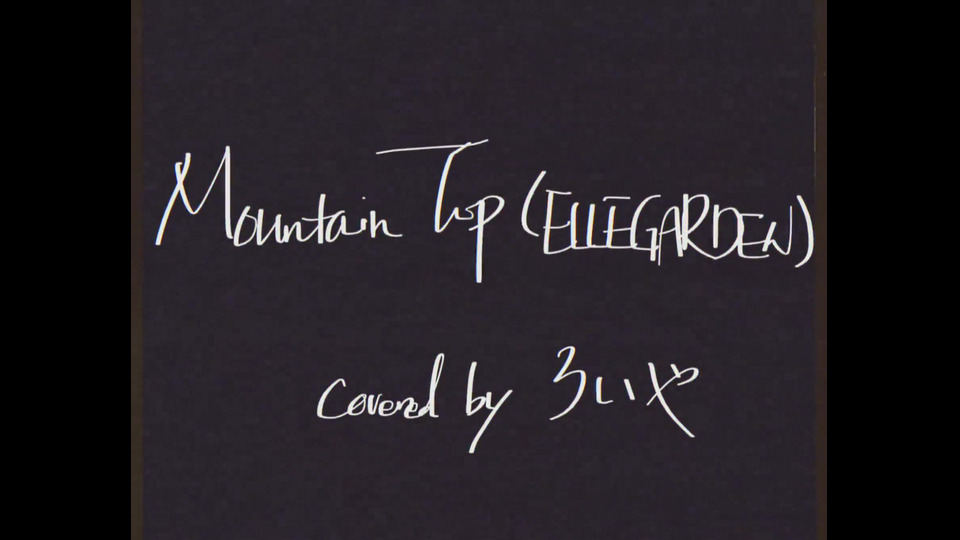 Mountain Top (ELLEGARDEN)
covered by ろいや